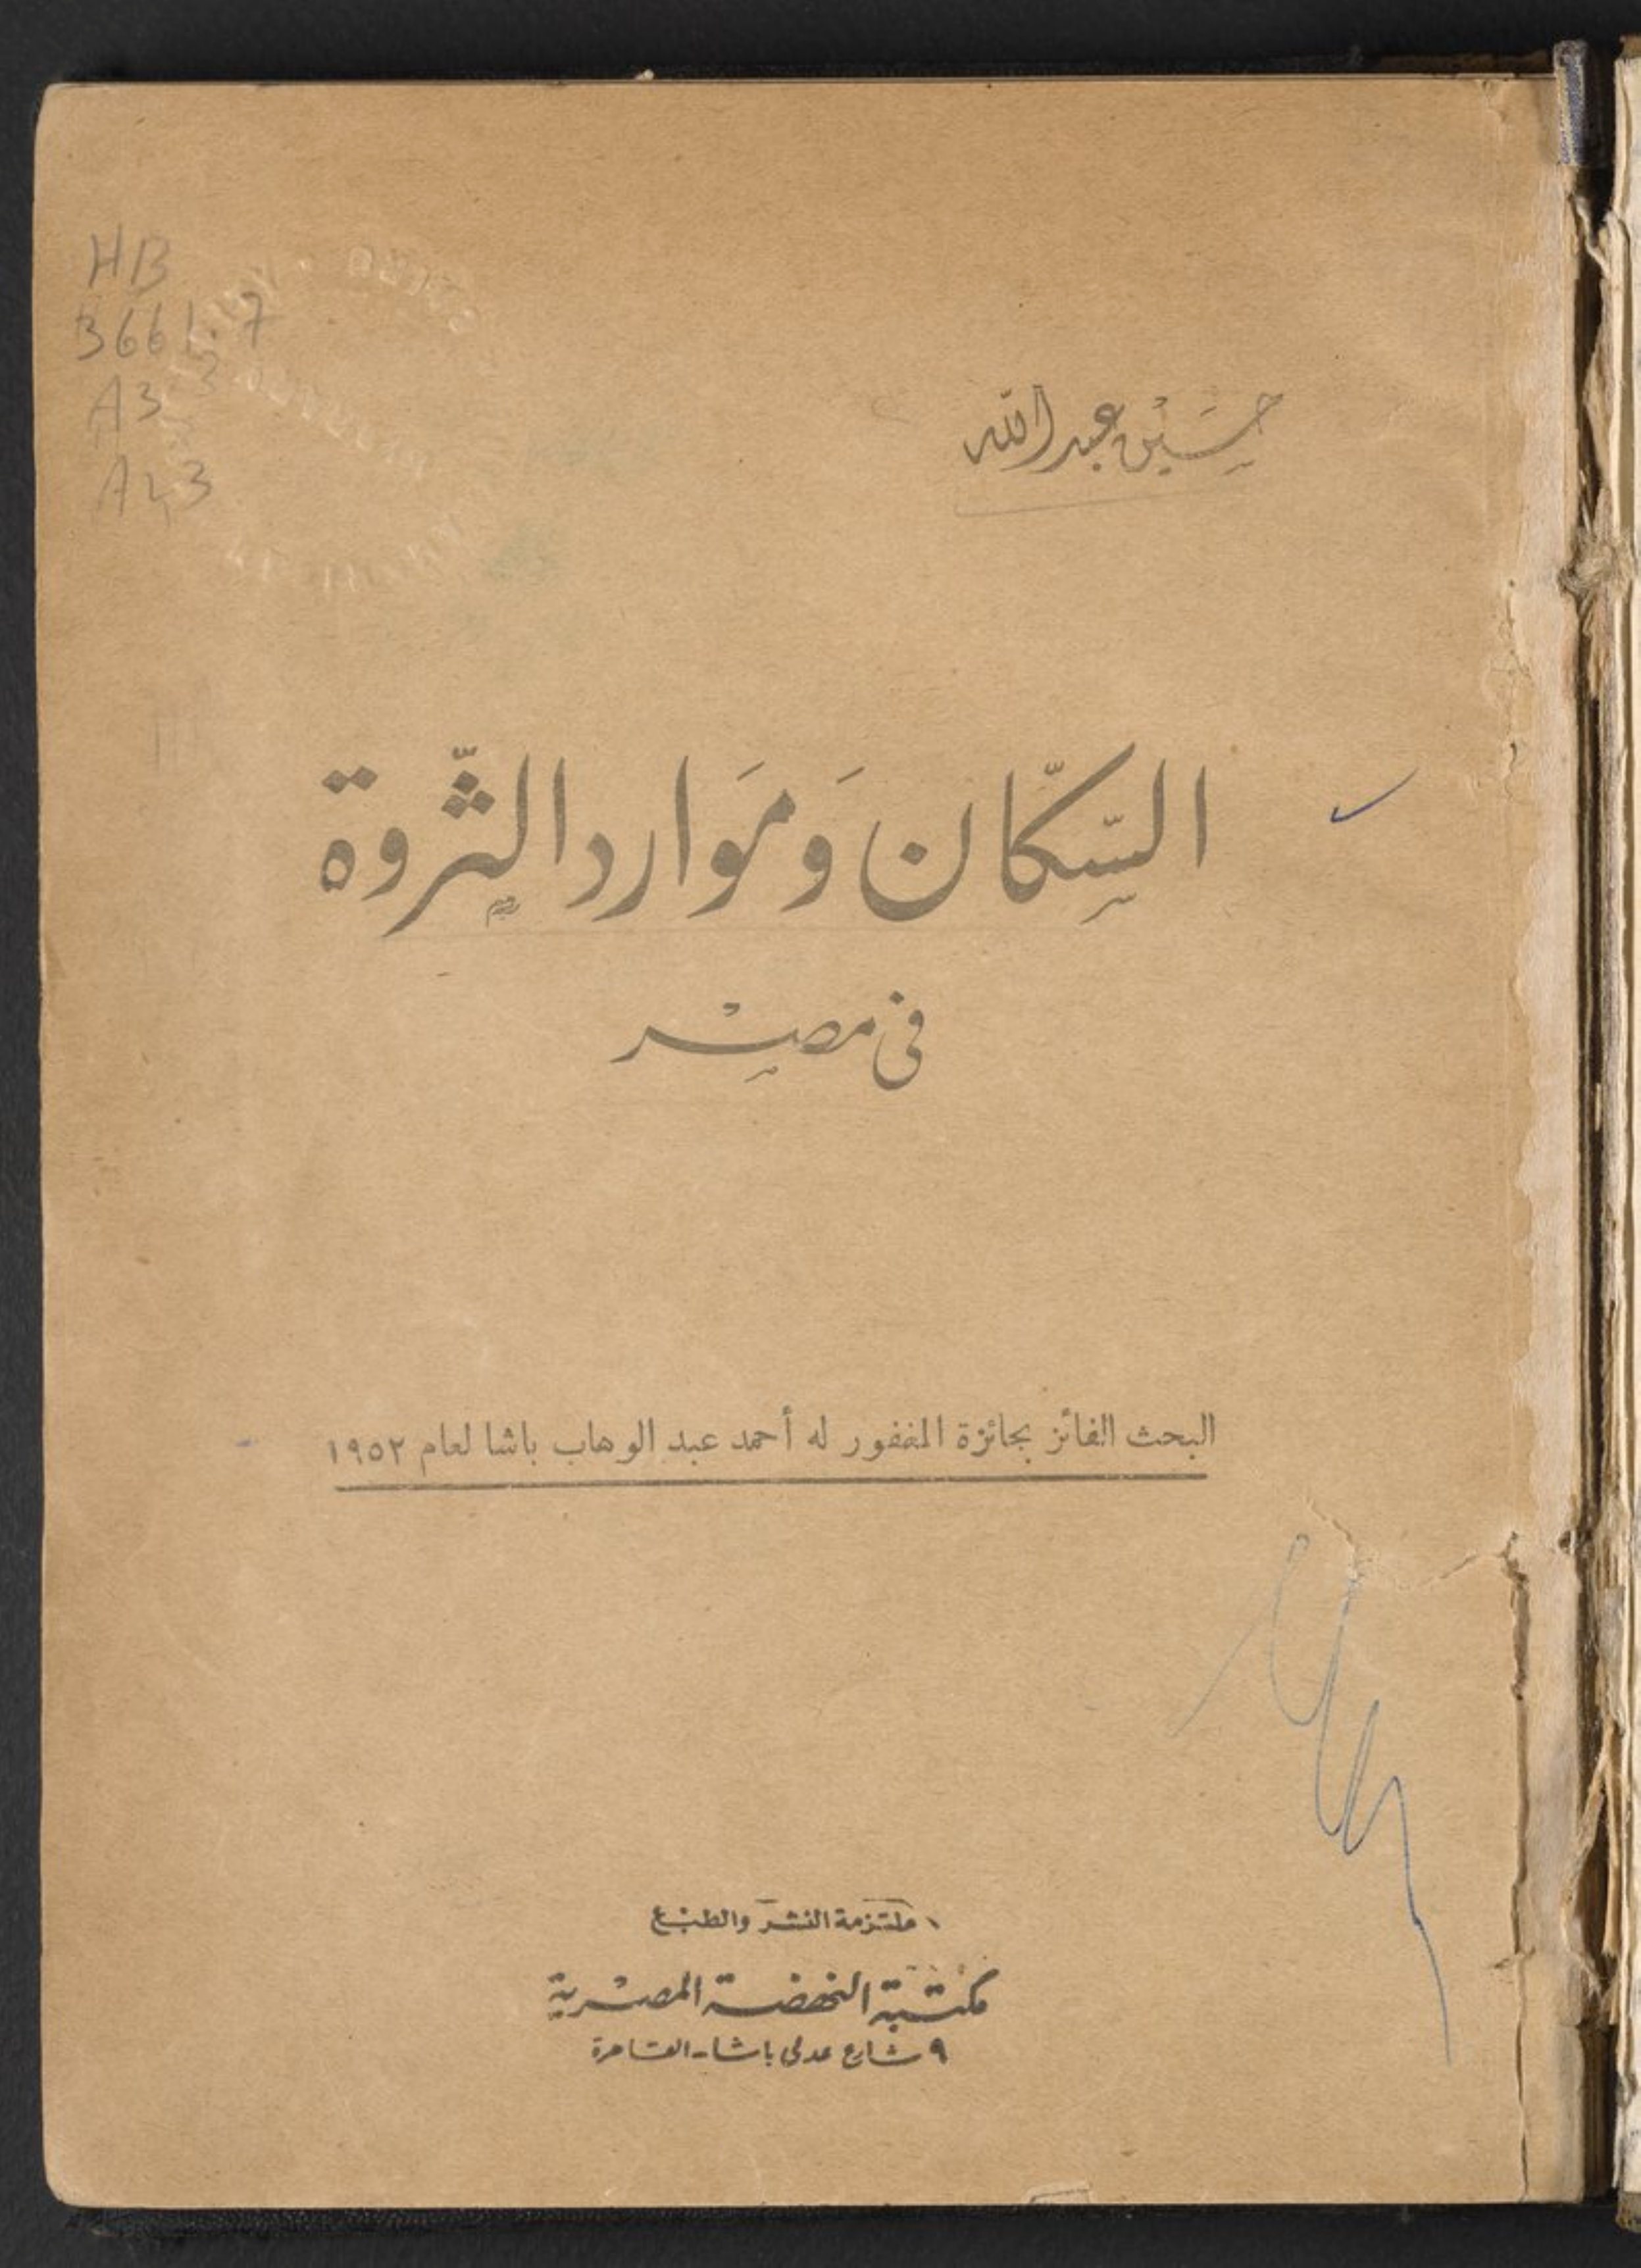 HB
3661.7
A3
A43
حسين عبد الله
السكّان وَمَوارد الثّروة
فى مصْر
البحث الفائز بجائزة المغفور له أحمد عبد الوهاب باشا لعام ١٩٥٢
ملتزمة النشر والطبع
مكتبة النهضة المصْرية
٩ شارع عدلى باشا - القاهرة